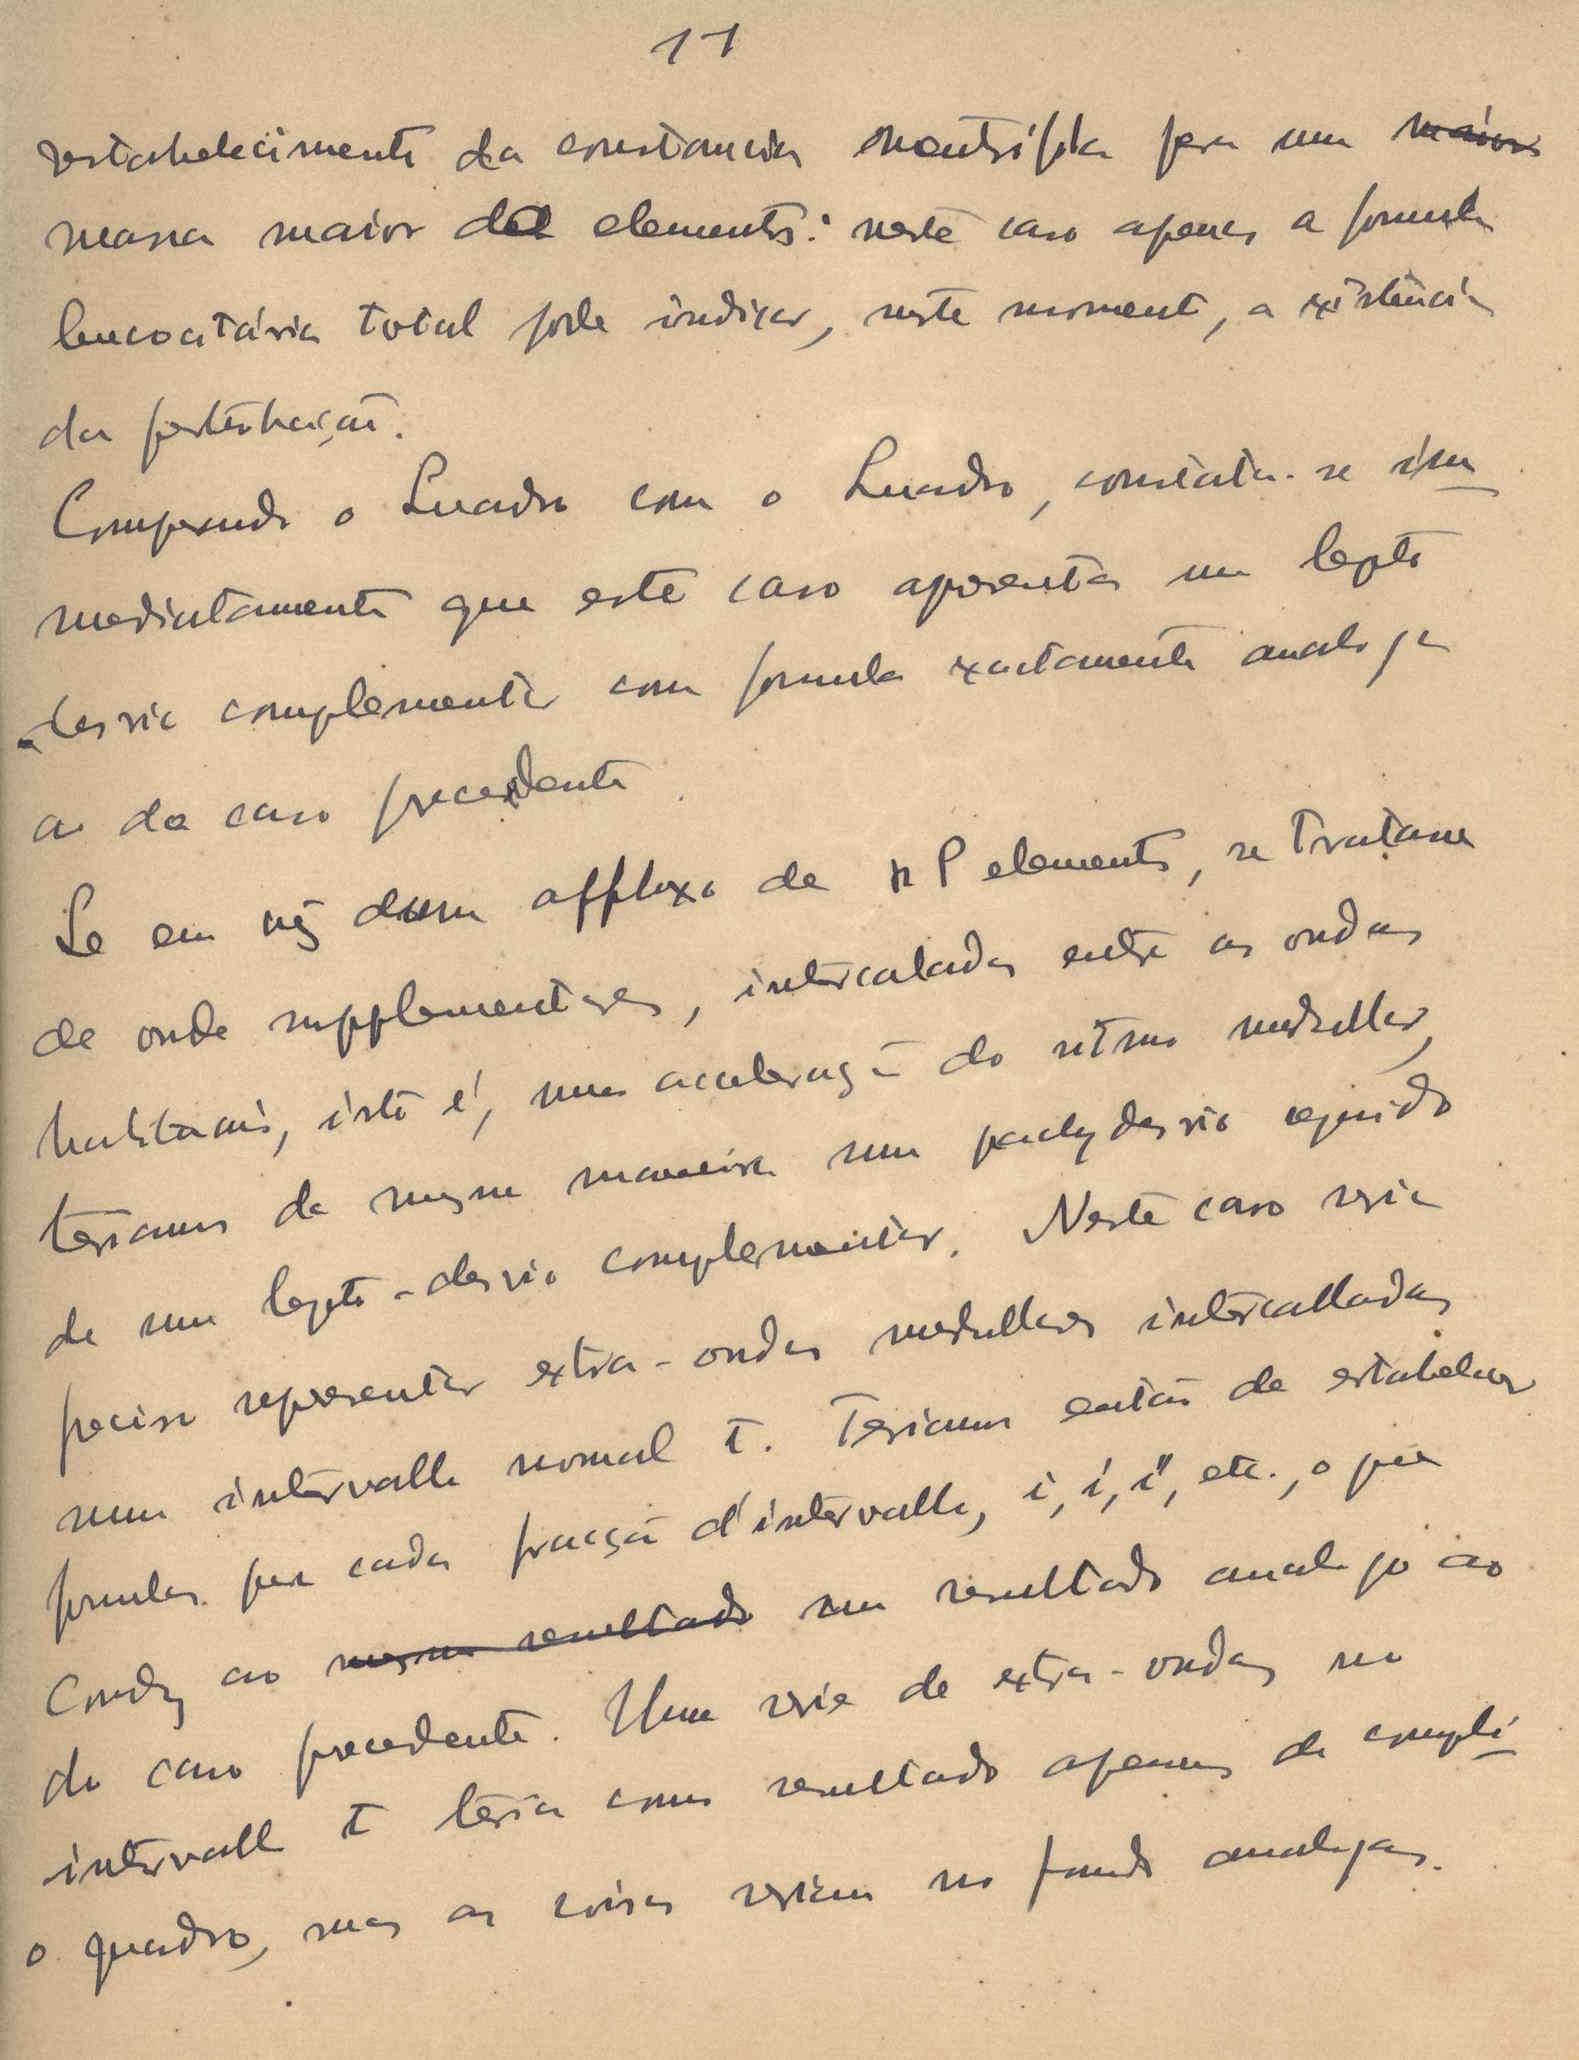 11
restabelecimento da constancia neutrófila para uma maior
massa maior de elementos: neste caso apenas a formula
leucocitária total pode indicar, neste momento, a existência
da perturbação.
Comparando o Quadro com o Quadro, constata-se im-
mediatamente que este caso apresenta um lepto
desvio complementar com formula exactamente analoga
a do caso precedente
Se em vez dum affluxo de n P elementos, se tratasse
de onde supplementares, intercaladas entre as ondas
habituais, isto é, uma acceleração do ritmo medullar,
teriamos da mesma maneira um pachydesvio seguido
de um lepto-desvio complementar. Neste caso seria
preciso representar extra-ondas medullares intercalladas
num intervallo normal T. Teriamos então de estabelecer
formulas para cada fracção d'intervallo, i, i', i'', etc., o que
conduz ao mesmo resultado um resultado analogo ao
do caso precedente. Uma serie de extra-ondas no
intervallo T teria como resultado apenas de compli-
o quadro, mas as coisas seriam no fundo analogas.